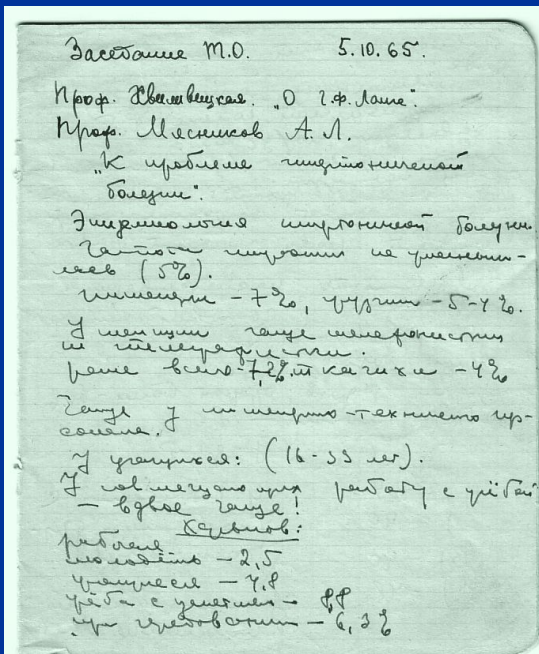 Заседание Т.О. 5.10.65.
Проф. Хвиливицкая. „О Г.Ф. Ланге".
Проф. Мясников А. Л.
„К проблеме гипертонической
болезни".
Эпидемиология гипертонической болезни
Частота гипертонии не уменьши-
лась (5%).
- 7%, - 5-4%.
У женщин чаще телефонистки
и телеграфистки.
реже всего - 7,2%. ткачихи - 4%
Чаще у инженерно-технического пер-
сонала.
У учащихся: (16-33 лет).
У совмещающих работу с учёбой
- вдвое чаще!
Харьков:
рабочая
молодёжь - 2,5
учащиеся - 4,8
учёба с - 8,8
при - 6,3%